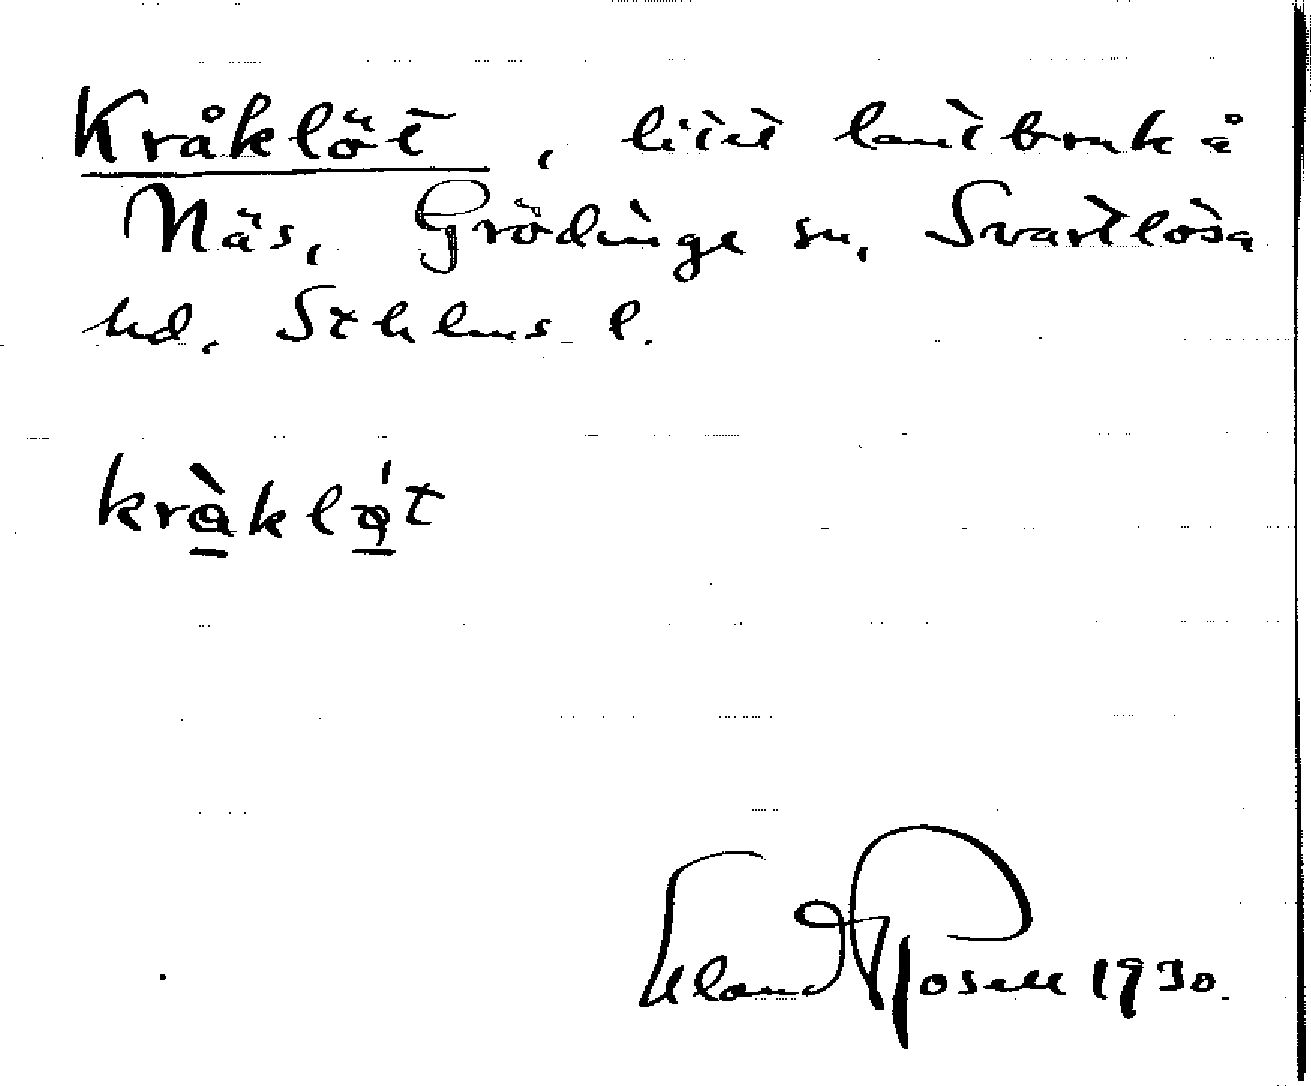 Kråklöt, litet lantbruk å
Näs, Grödinge sn, Svartlösa
hd. Sthlms l.
kràklǫ́t
Erland Rosell 1930.